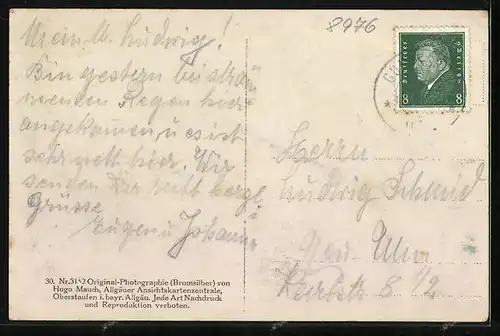 8976
Mein lb. Ludwig!
Bin gestern bei strömenden Regen hier
angekommen, u es ist
sehr nett hier. Wir
senden Dir recht herzl
Grüsse
Eugen u Johanna
30. Nr. 3182 Original-Photographie (Bromsilber) von
Hugo Mauch, Allgäuer Ansichtskartenzentrale,
Oberstaufen i. bayr. Allgäu. Jede Art Nachdruck
und Reproduktion verboten.
Deutsches Reich
8 8
Herrn
Ludwig Schmid
Neu-Ulm
8 1/2